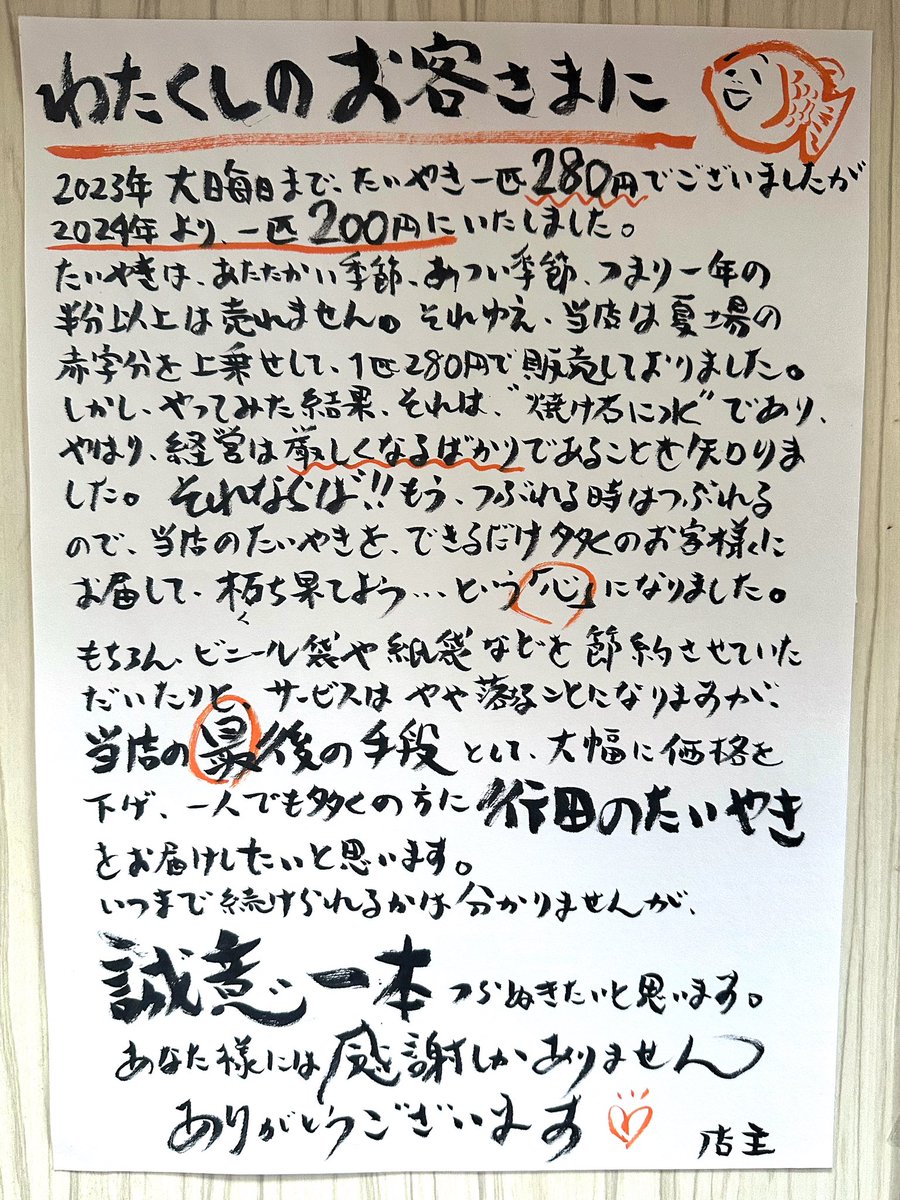 わたくしのお客さまに
2023年 大晦日まで、たいやき一匹280円でございましたが
2024年より、一匹200円にいたしました。
たいやきは、あたたかい季節、あつい季節、つまり一年の
半分以上は売れません。それゆえ、当店は夏場の
赤字分を上乗せして、1匹280円で販売しておりました。
しかし、やってみた結果、それは、“焼け石に水”であり、
やはり、経営は厳しくなるばかりであることを知りま
した。それならば!!もう、つぶれる時はつぶれる
ので、当店のたいやきを、できるだけ多くのお客様に
お届して、朽ち果てよう…という「心」になりました。
く
もちろん、ビニール袋や紙袋などを節約させていた
だいたりと、サービスはやや落ちることになりますが、
当店の最後の手段として、大幅に価格を
下げ、一人でも多くの方に行田のたいやき
をお届けしたいと思います。
いつまで続けられるかは分かりませんが、
誠意一本つらぬきたいと思います。
あなた様には感謝しかありません
ありがとうございます
店主